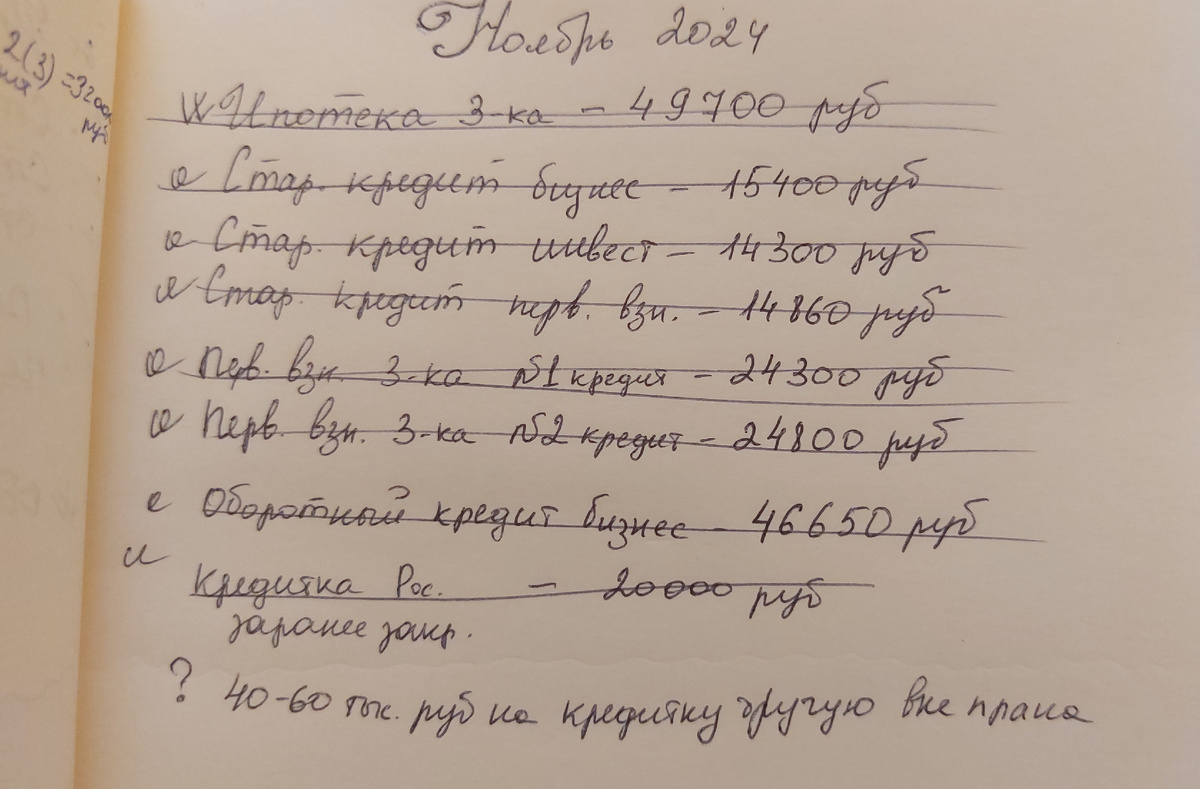 Ноябрь 2024
2(3) = 3200
руб
Ипотека 3-ка - 49700 руб
Стар. кредит бизнес - 15400 руб
Стар. кредит инвест - 14300 руб
Стар. кредит перв. взн. - 14860 руб
Перв. взн. 3-ка №1 кредит - 24300 руб
Перв. взн. 3-ка №2 кредит - 24800 руб
Оборотный кредит бизнес - 46650 руб
Кредитка Рос. - 20000 руб
заранее закр.
? 40-60 тыс. руб на кредитку другую вне плана